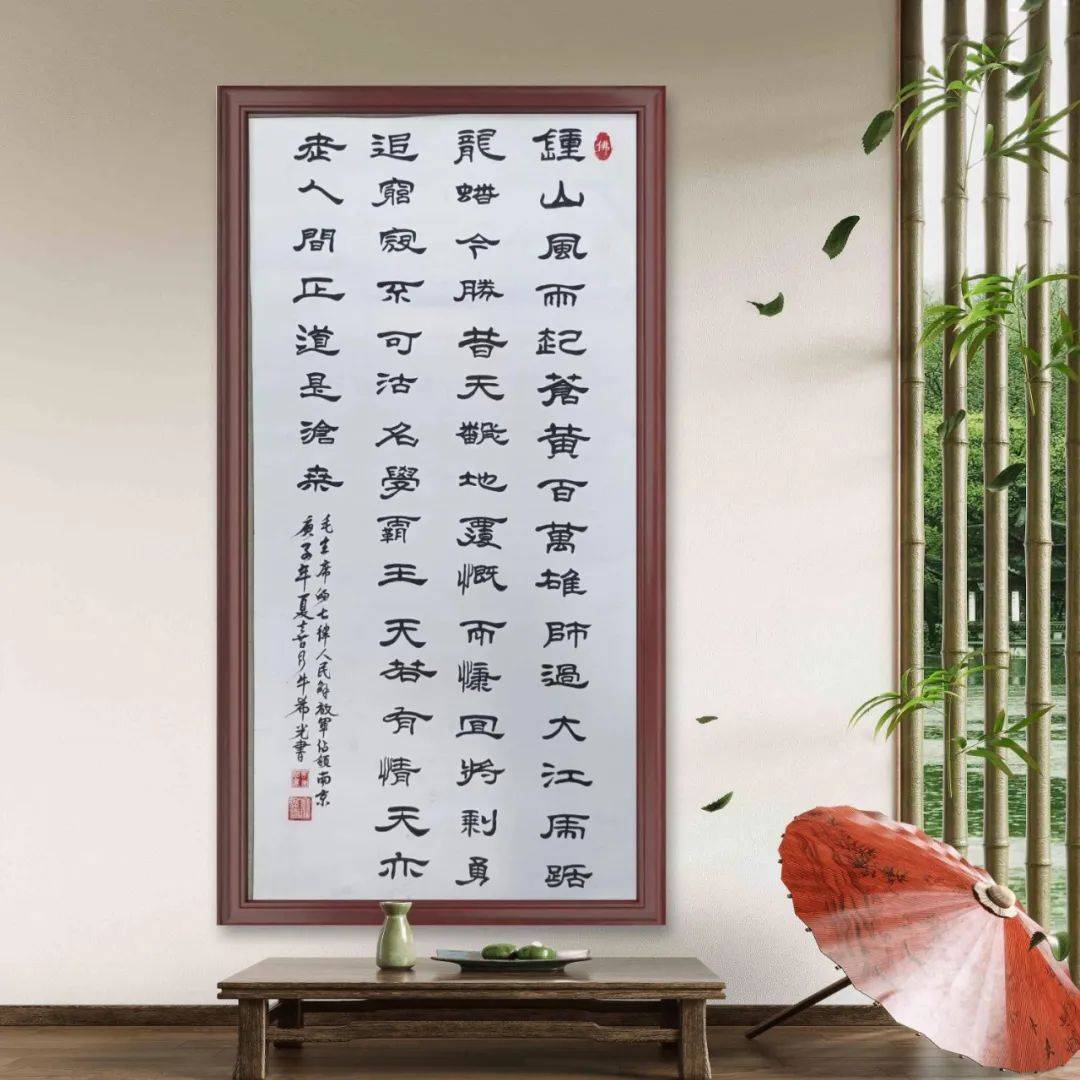 佛
鍾山風雨起蒼黃百萬雄師過大江虎踞
龍蟠今勝昔天飜地覆慨而慷宜將剩勇
追窮寇不可沽名學霸王天若有情天亦
老人間正道是滄桑
毛主席七律人民解放軍佔領南京
庚子年夏月牛希光書